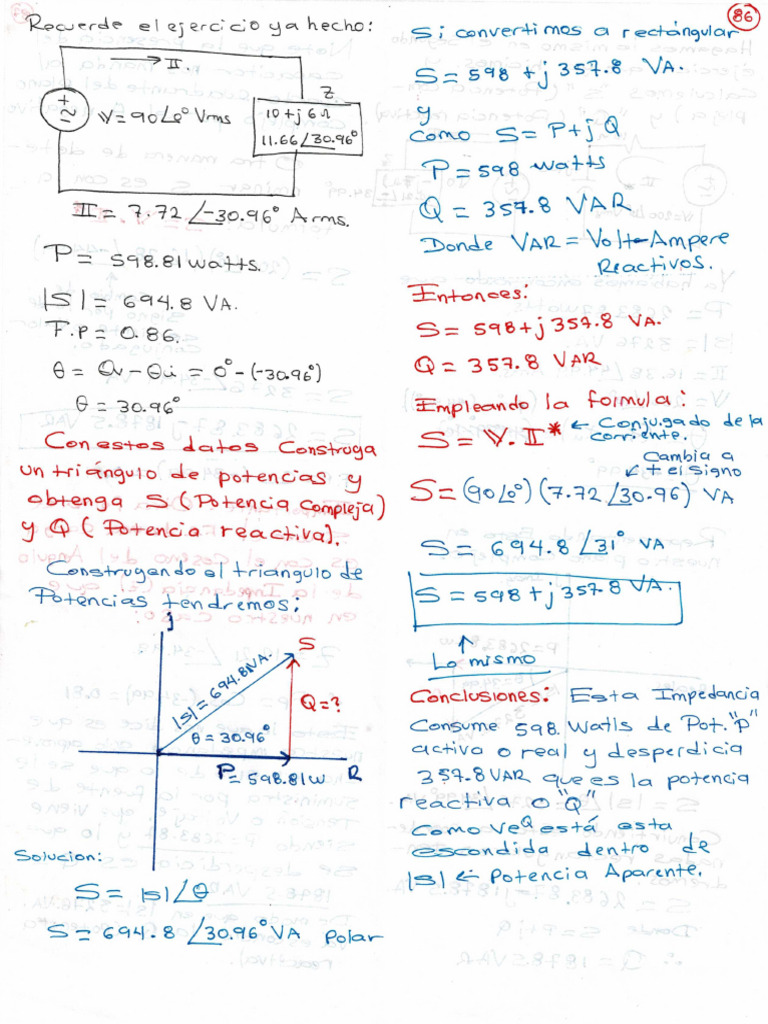 86
Recuerde el ejercicio ya hecho:
II.
Z
V = 90∠0° Vrms
10 + j 6 Ω
11.66 ∠30.96°
II = 7.72 ∠-30.96° Arms.
P = 598.81 watts.
|S| = 694.8 VA.
F.p = 0.86.
θ = θv - θi = 0° - (-30.96°)
θ = 30.96°
Con estos datos Construya
un triángulo de potencias y
obtenga S (Potencia Compleja)
y Q (Potencia reactiva).
Construyendo el triangulo de
Potencias tendremos:
j
S
|S| = 694.8 VA.
Q = ?
θ = 30.96°
P = 598.81 w
R
Solucion:
S = |S| ∠θ
S = 694.8 ∠30.96° VA Polar
Si convertimos a rectángular
S = 598 + j 357.8 VA.
y
como S = P + j Q
P = 598 watts
Q = 357.8 VAR
Donde VAR = Volt-Ampere
Reactivos.
Entonces:
S = 598 + j 357.8 VA.
Q = 357.8 VAR
Empleando la formula:
S = V. I* ← Conjugado de la
corriente.
Cambia a
+ el signo
S = (90∠0°) (7.72 ∠30.96) VA
S = 694.8 ∠31° VA
S = 598 + j 357.8 VA.
↑
Lo mismo
Conclusiones: Esta Impedancia
Consume 598. Watts de Pot. "P"
activa o real y desperdicia
357.8 VAR que es la potencia
reactiva o "Q"
Como ve Q está esta
escondida dentro de
|S| ← Potencia Aparente.